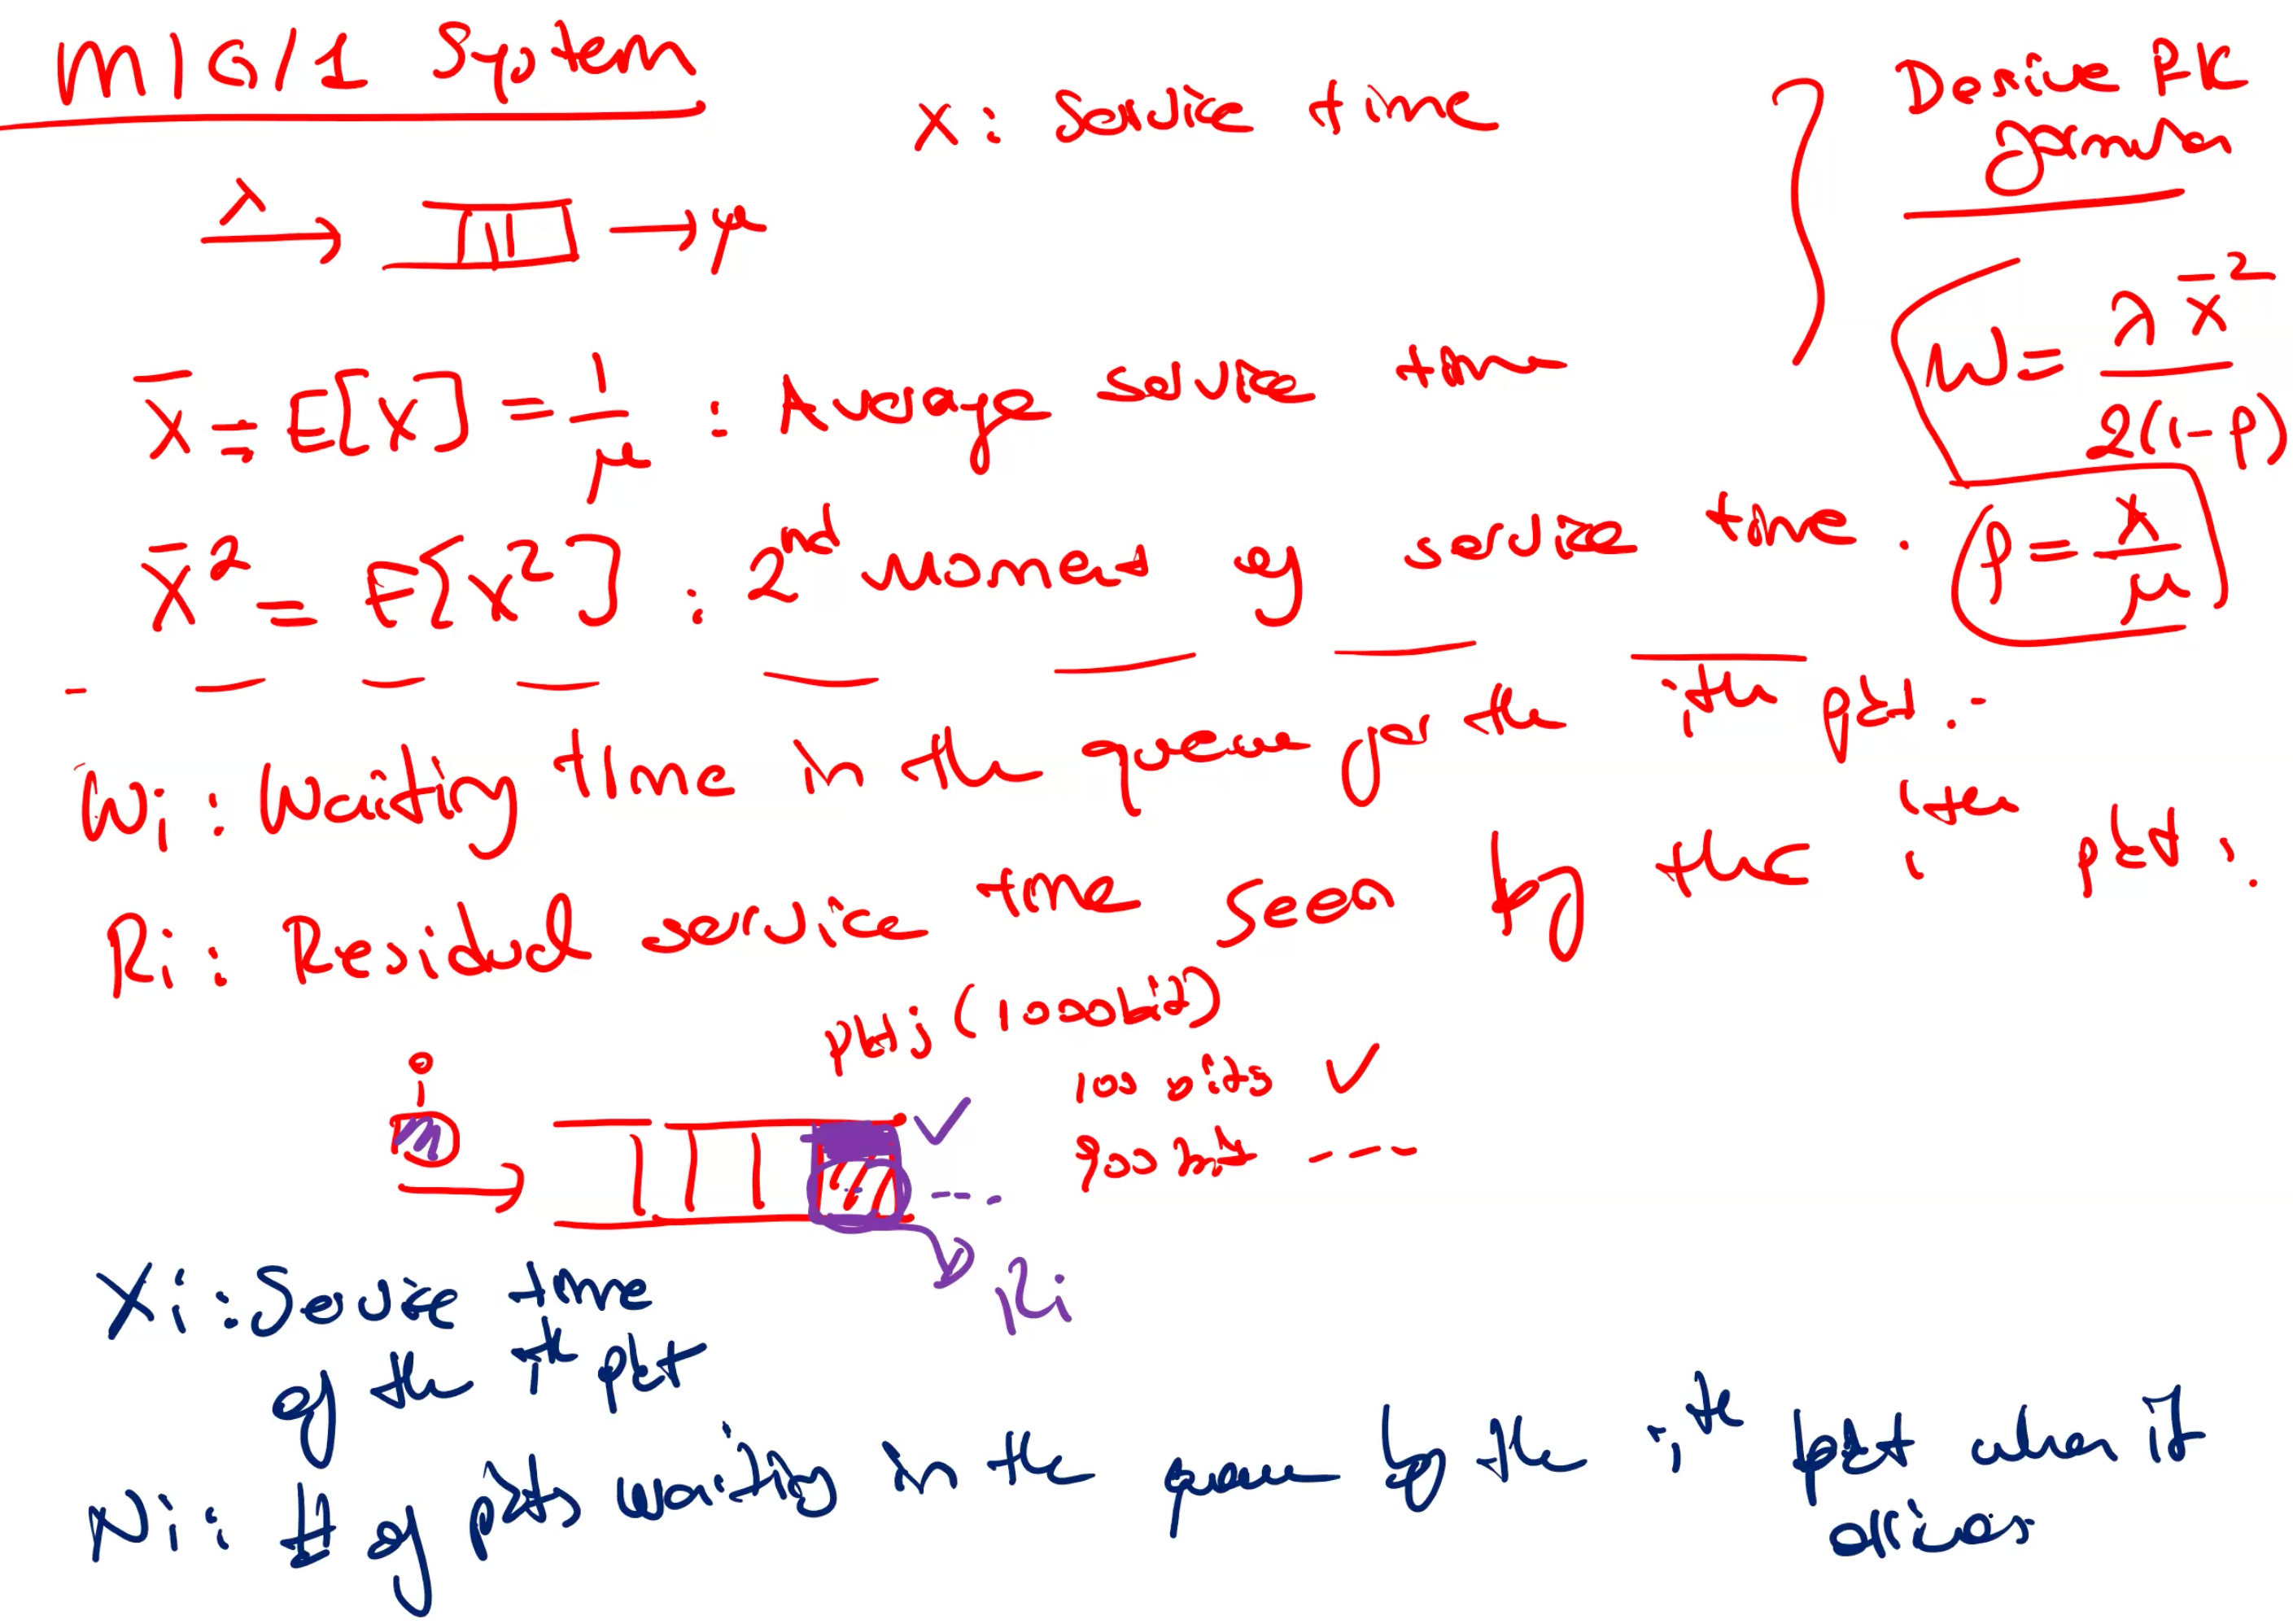 M/G/1 System
X: Service time
Derive PK formula
λ → → μ
W = λ X̄² / 2(1-ρ)
X̄ = E[X] = 1/μ : Average service time
X̄² = E[X²] : 2nd Moment of service time.
ρ = λ/μ
Wi : Waiting time in the queue for the ith pkt.
Ri : Residual service time seen by the ith pkt.
pkt j (1000bit)
100 bits ✓
900 bit ----
i
✓
---.
Ri
Xi : Service time
of the ith pkt
Ni : # of pkts waiting in the queue by the ith pkt when it
arrives